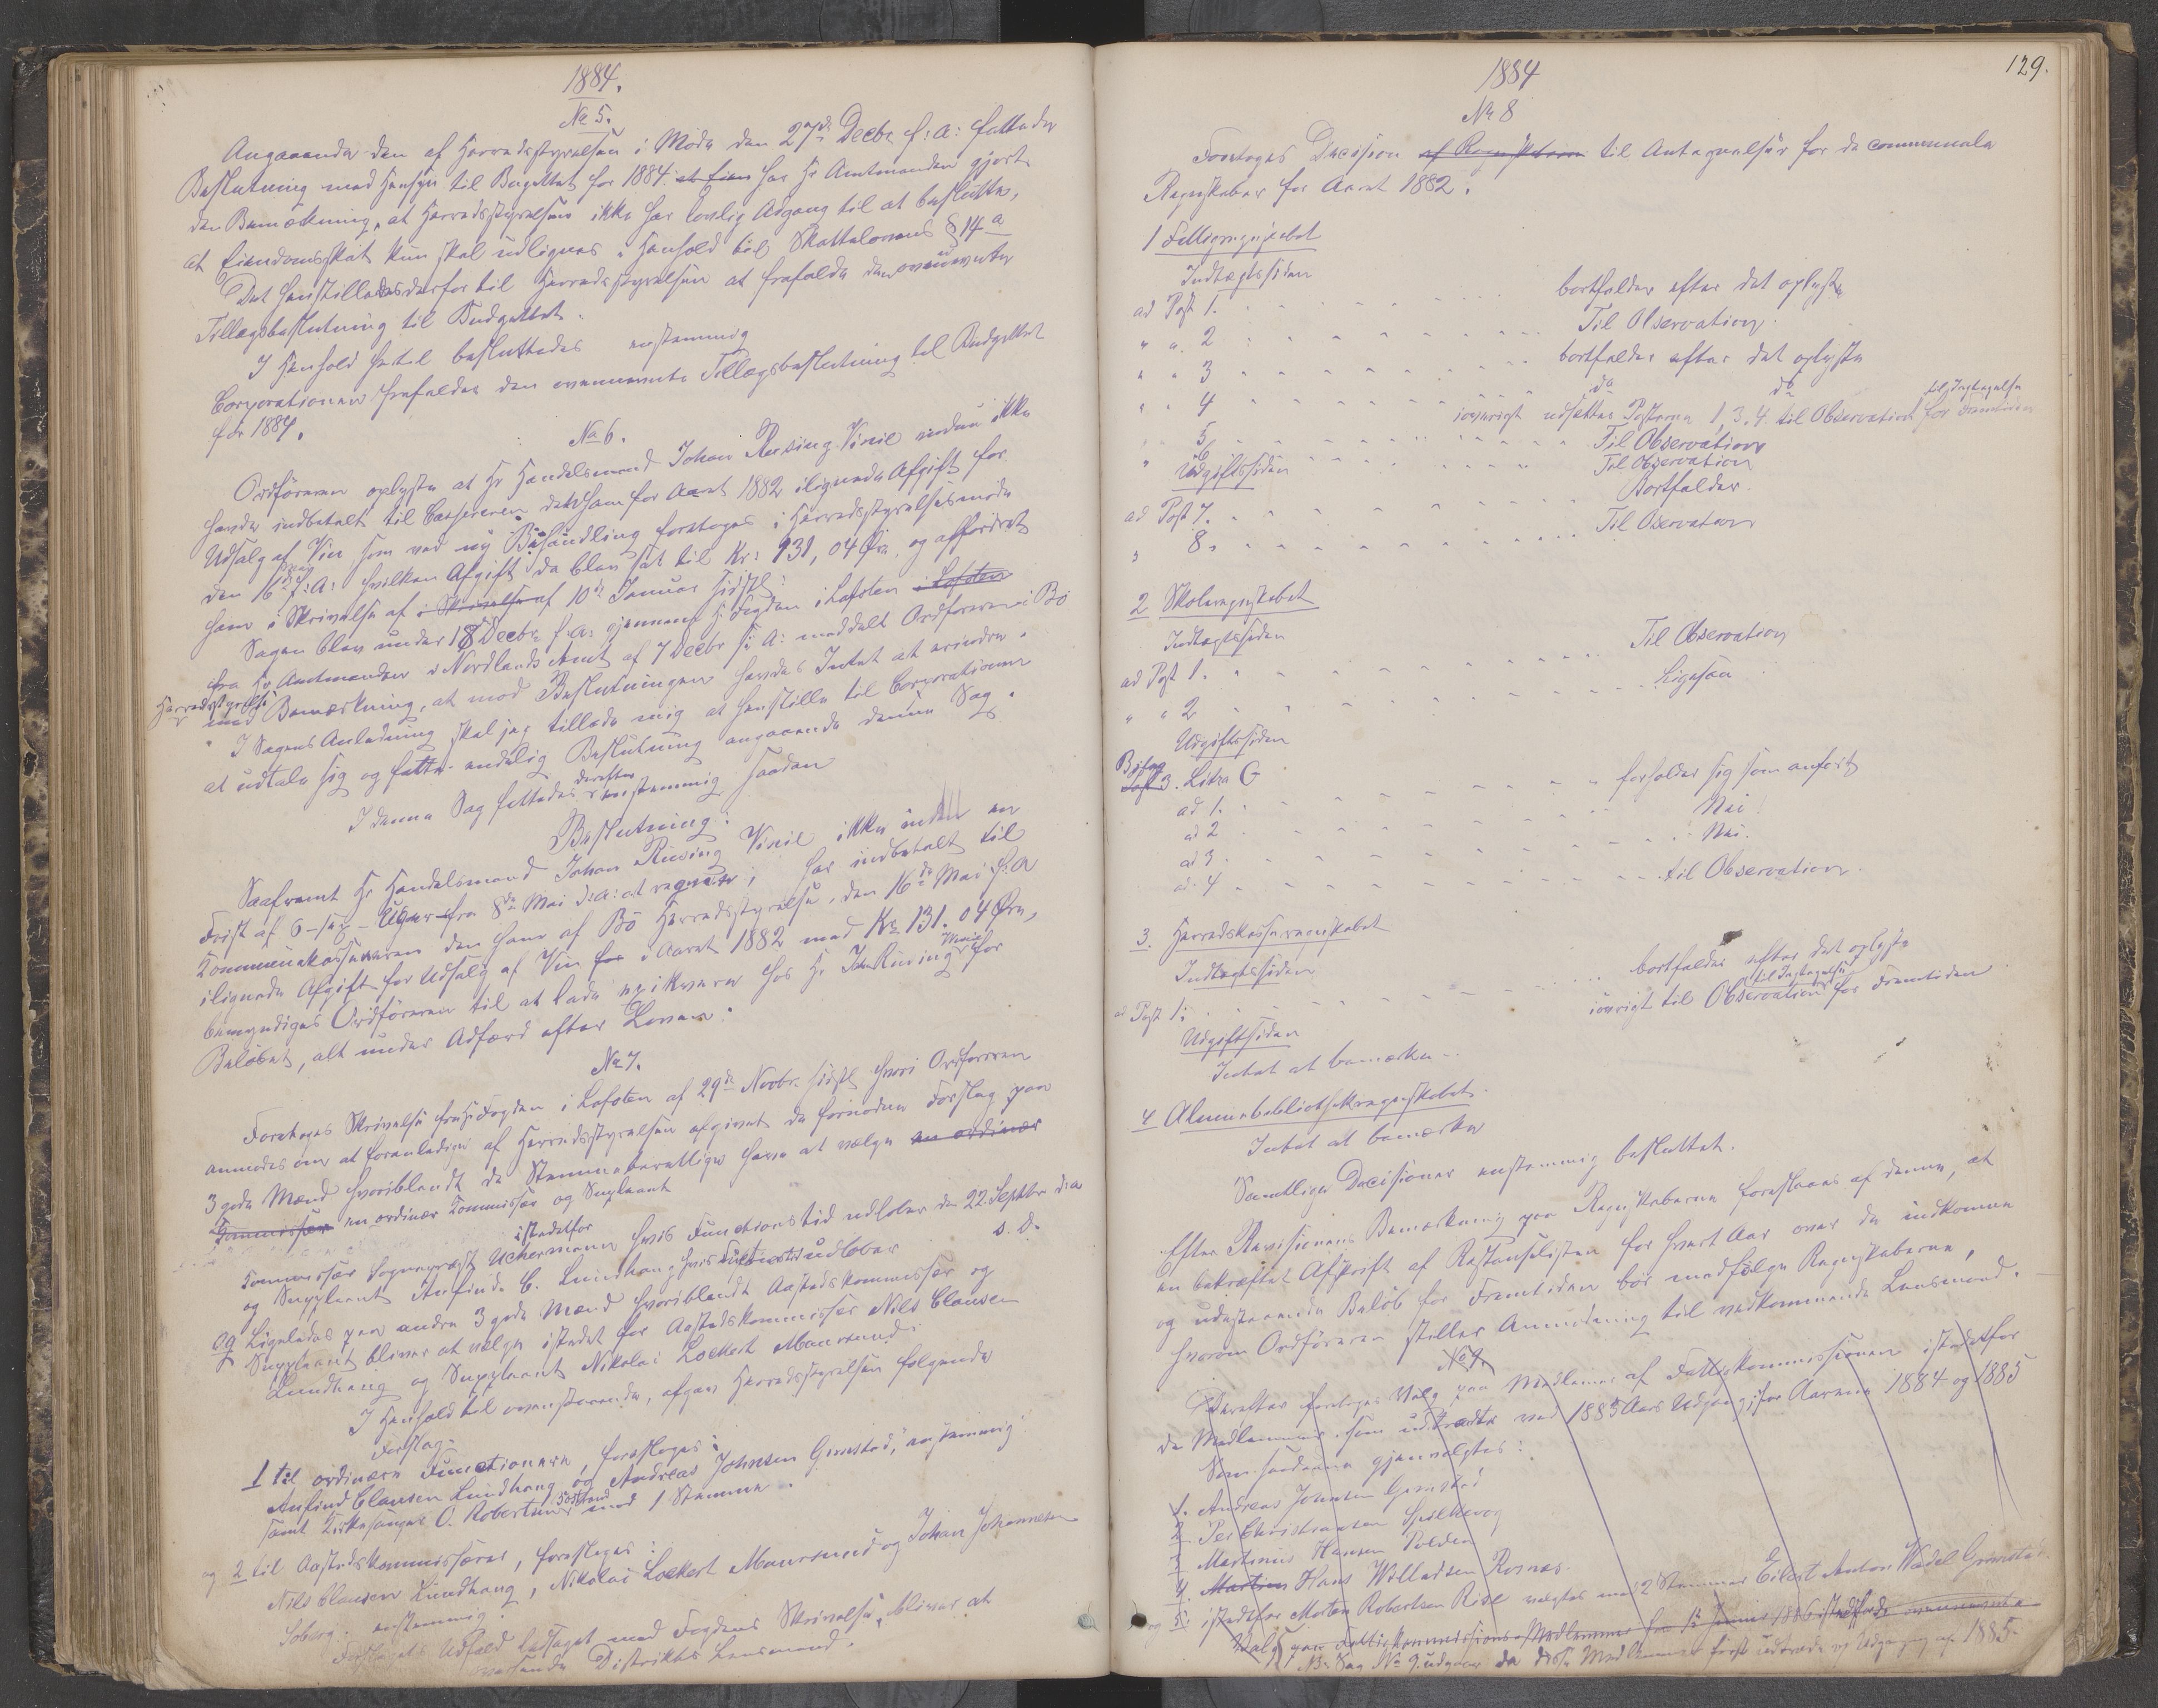 1884.
No 5.
Angaaende den af Herredsstyrelsen i Møde den 27de Decbr f: A: fattede
Beslutning med Hensyn til Bugettet for 1884 at Eien har Hr Amtmanden gjort
den Bemærkning, at Herredsstyrelsen ikke har lovlig Adgang til at beslutte,
at Eiendomsskat kun skal udlignes i Henhold til Skatteloven § 14 a
Det henstilledes derfor til Herredsstyrelsen at frafalde den ovennævnte
Tillægsbeslutning til Budgettet.
I Henhold hertil besluttedes enstemmig
Corporationen frafalder den ovennævnte Tillægsbeslutning til Budgettet
for 1884.
No 6.
Ordföreren oplyste at Hr Handelsmand Johan Rusing Vinie endnu ikke
havde indbetalt til Cassereren den ham for Aaret 1882 ilignede Afgift for
Udsalg af Vin som ved ny Behandling foretoges i Herredsstyrelsesmöde
den 16de f: A: hvilken Afgift da blev sat til Kr: 131,04 Øre, og affordret
ham i Skrivelse af i Skrivelse af 10de Januar sidstl:
Sagen blev under 18 Decbr f. A: gjennem Hr Fogden i Lofoten i Lofoten
fra Hr Amtmanden i Nordlands Amt af 7 Decbr s: A: meddelt Ordforeren i Bö
Herredsstyrelse
med Bemærkning, at mod Beslutningen havdes Intet at erindre.
I Sagens Anledning skal jeg tillade mig at henstille til Corporationen
at udtale sig og fatte endelig Beslutning angaaende denne Sag.
I denne Sag fattedes derefter enstemmig saadan
Beslutning:
Saafremt Hr Handelsmand Johan Rusing Vinie ikke inden en
Frist af 6 - sex - Uger fra 8de Mai d: A: at regne, har indbetalt til
Kommunekassereren den ham af Bö Herredsstyrelse, den 16de Mai f. A
ilignede Afgift for Udsalg af Vin for i Aaret 1882 med Kr 131.04 Øre,
bemyndiges Ordföreren til at lade exikvere hos Hr Joh Rusing Winie for
Belöbet, alt under Adfærd efter Loven.
No 7.
Foretoges Skrivelse fra Hr Fogden i Lofoten af 29de Novbr sidstl hvori Ordforeren
anmodes om at foranledige af Herredsstyrelsen afgivet de fornödne Forslag paa
3 gode Mænd hvoriblandt de Stemmeberettigede have at vælge en ordinær
Kommissær en ordinær Kommissær og Supleant
istedetfor
Kommissær Sogneprest Uchermann hvis Functionstid udlöber den 22 Septbr d: a
og Suppleant Anfind C. Lundhaug hvis Functionstid udlöber s. D.
og Ligeledes paa andre 3 gode Mænd hvoriblandt Aastedskommissær og
Suppleant bliver at vælge istedet for Aastedskommissær Nils Clausen
Lundhaug og Suppleant Nikolai Lockert Maursund.
I Henhold til ovenstaaende, afgav Herredsstyrelsen følgende
Forslag:
1 til ordinære Functionærer, foresloges:
Anfind Clausen Lundhaug og Andreas Johnsen Grimstad, enstemmig
samt Kirkesanger O. Robertsen med 1 Stemme.
og 2 til Aastedskommissærer, foresloges:
Nils Clausen Lundhaug, Nikolai Lockert Maursund og Johan Johannesen
Soberg. enstemmig.
Forslagets Udfald ledsaget med Fogdens Skrivelse, bliver at
Distriktets Lensmand.
129.
1884
No 8
Foretoges Decision af Regnskabern til Antegnelser for de communale
Regnskaber for Aaret 1882.
1 Fattigregnskabet
Indtægtssiden
ad Post 1. bortfalder efter det oplyste
" " 2 Til Observation.
" " 3 bortfalder efter det oplyste
" " 4 do do
iovrigt udsættes Posterne 1, 3. 4. til Observation til Iagtagelse for Fremtiden
5 Til Observation
" 6 Til Observation
Udgiftssiden
Bortfalder.
ad Post 7. Til Oservation
" 8.
2 Skoleregnskabet
Indtægtssiden
ad Post 1. Til Observation
" " 2 Ligesaa
Udgiftssiden
Bilag
Post 3. Litra G forholder sig som anfört
ad 1. Nei!
ad 2 Nei.
ad 3.
ad. 4 til Observation.
3. Herredskasseregnskabet
Indtægtssiden
ad Post 1: bortfalder efter det oplyste
iovrigt til Observation til Iagtagelse for Fremtiden
Udgiftsiden
Intet at bemærke
4 Almuebibliothekregnskabet.
Intet at bemærke
Samtlige Decisioner enstemmig besluttet.
Efter Revisionens Bemærkning paa Regnskaberne foreslaaes af denne, at
en bekræftet Afskrift af Restanselisten for hvert Aar over de indkomne
og udestaaende Belöb for Fremtiden bör medfölge Regnskaberne,
hvorom Ordföreren stiller Anmodning til vedkommende Lensmand.
No 9.
Derefter foretoges Valg paa Medlemmer af Fattigkommissionen istedetfor
de Medlemmer som udtrædte ved 1883 Aars Udgang, for Aarene 1884 og 1885
Som saadanne gjenvalgtes:
1. Andreas Johnsen Grimstad
2. Per Christiansen Spilkevog
3 Martinus Hansen Polden
4. Martin Hans Willadsen Rosnes.
og 5. istedetfor Morten Robertsen Risl valgtes med 2 Stemmer Eilert Anton Wadel Grimstad.
Valg paa Fattigkommissions Medlemmer fra 1ste Januar 1886 istedetfor de ovennævnte
NB. Sag No 9 udgaar da disse Medlemmer först udtræde ved Udgangen af 1885.